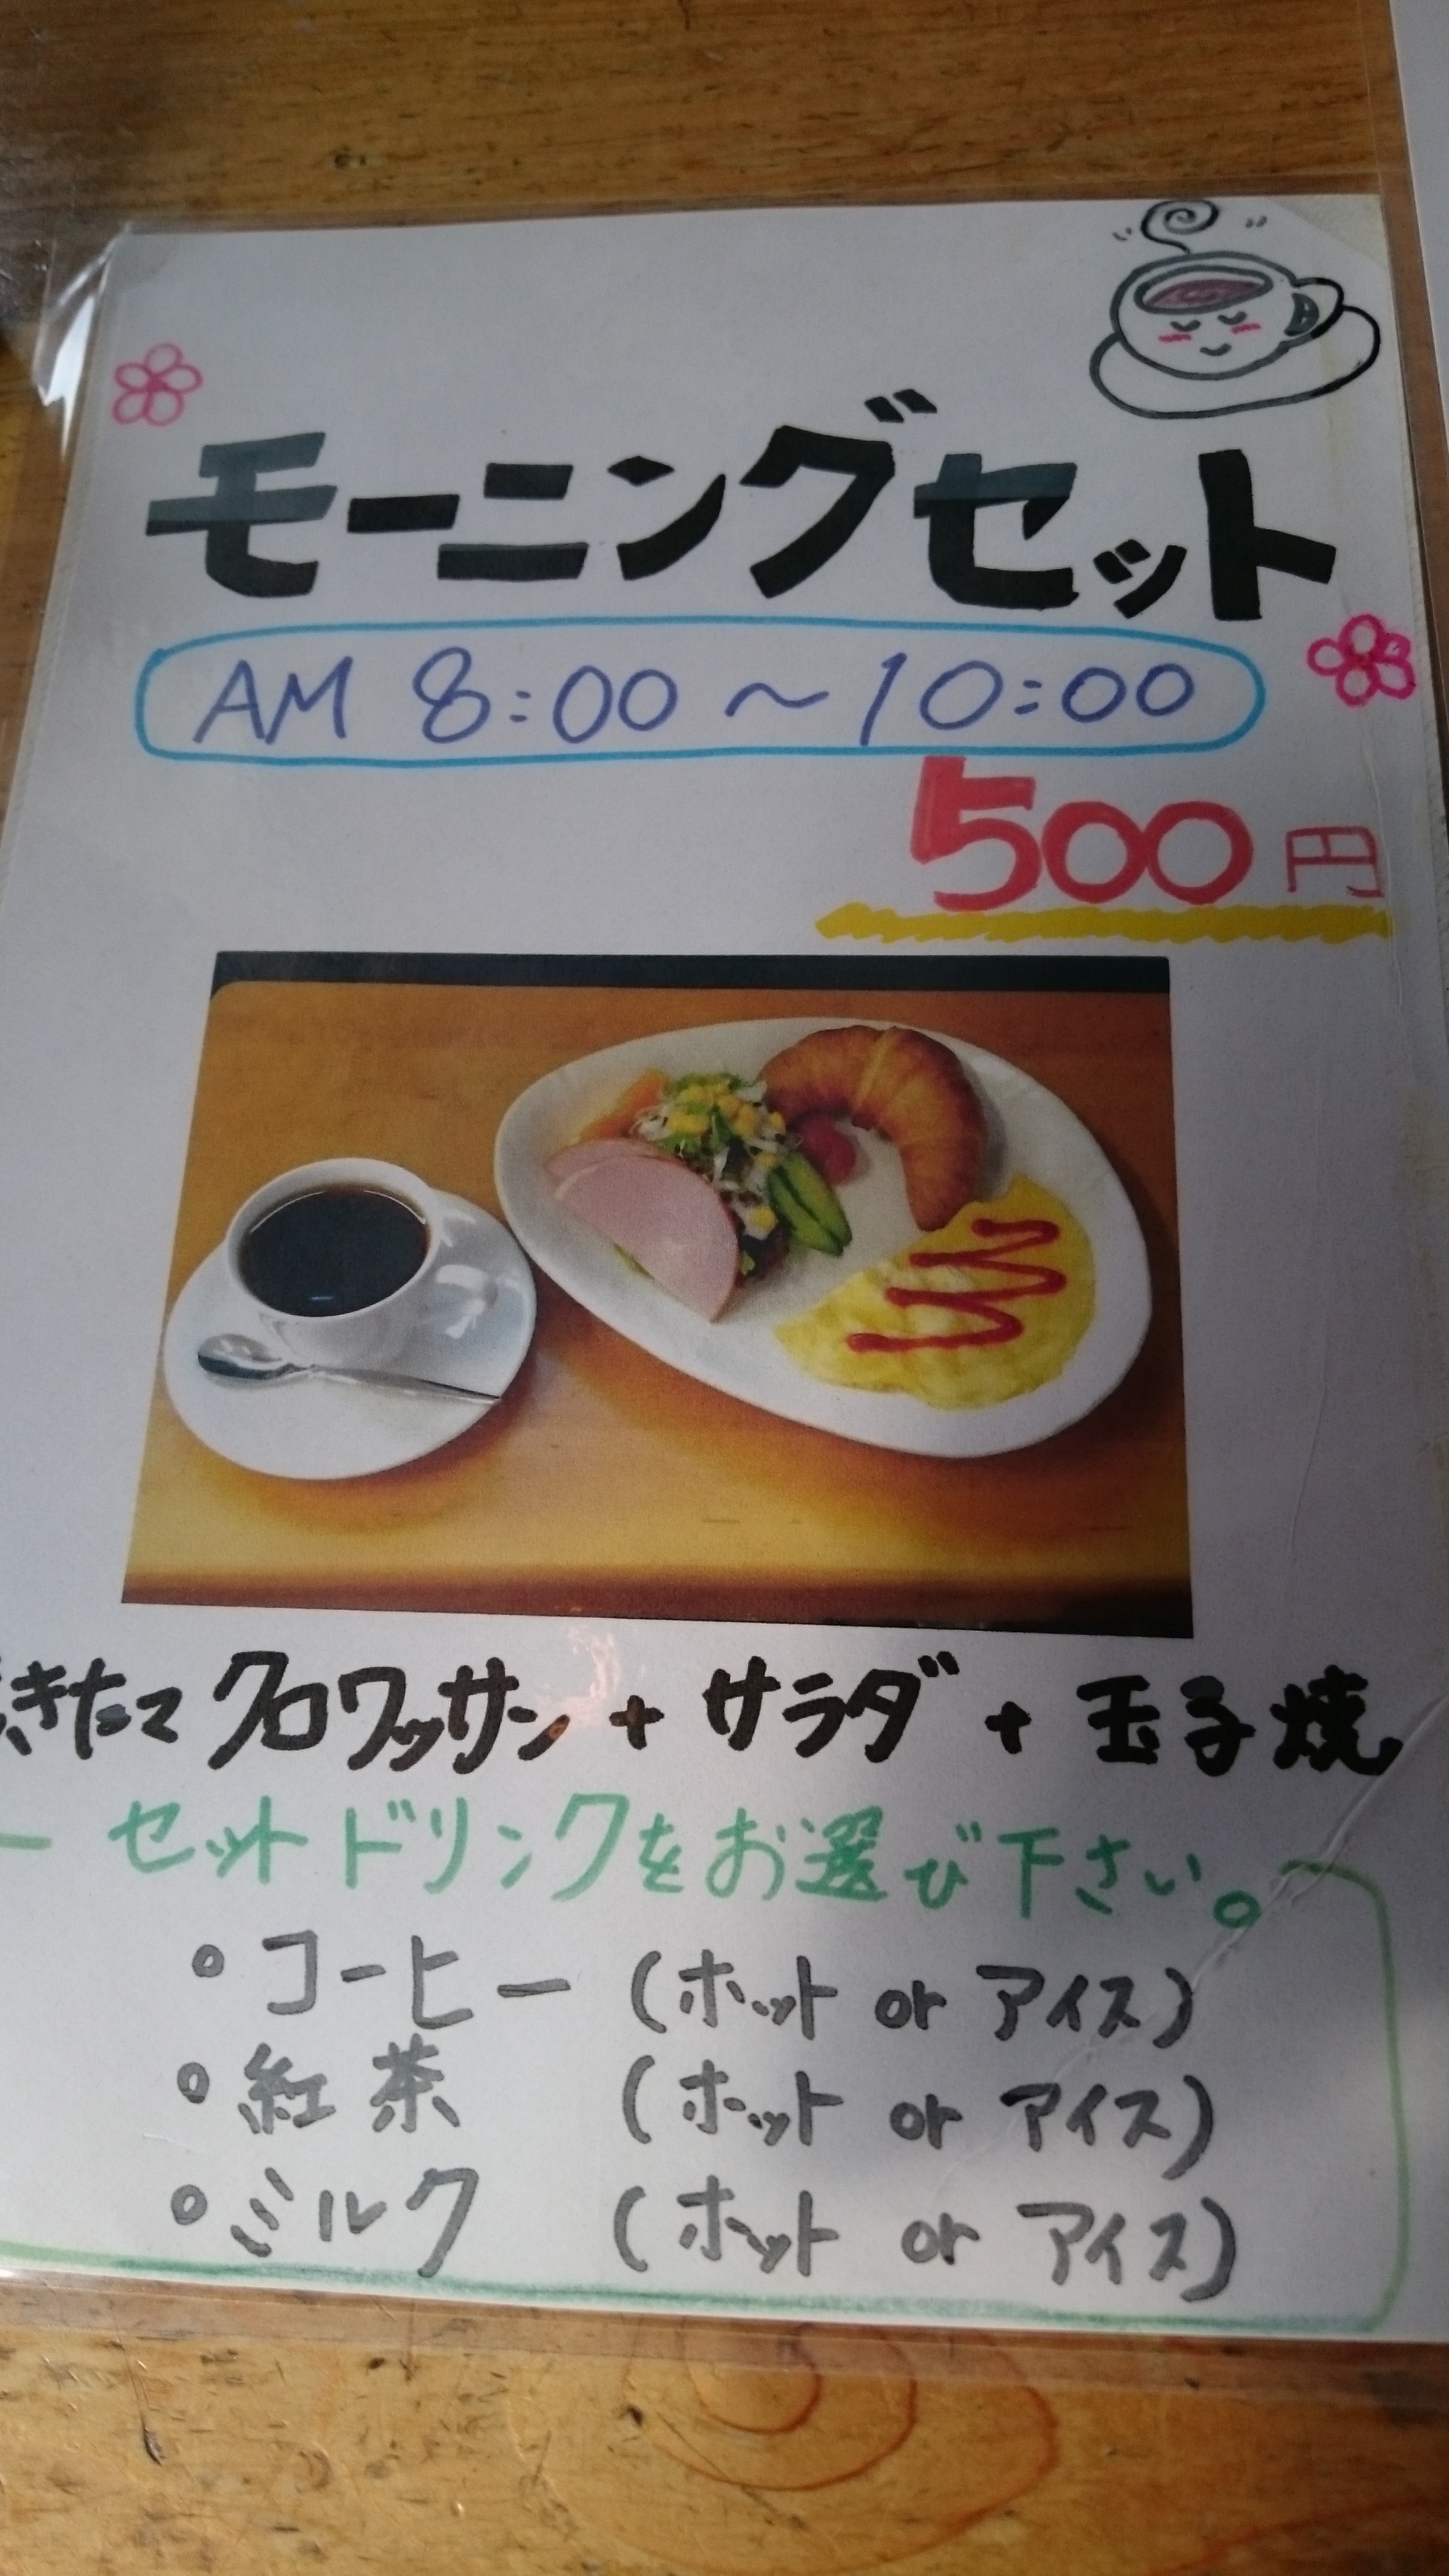 モーニングセット
AM 8:00～10:00
500円
きたてクロワッサン+サラダ+玉子焼
セットドリンクをお選び下さい。
・コーヒー (ホット or アイス)
・紅茶 (ホット or アイス)
・ミルク (ホット or アイス)